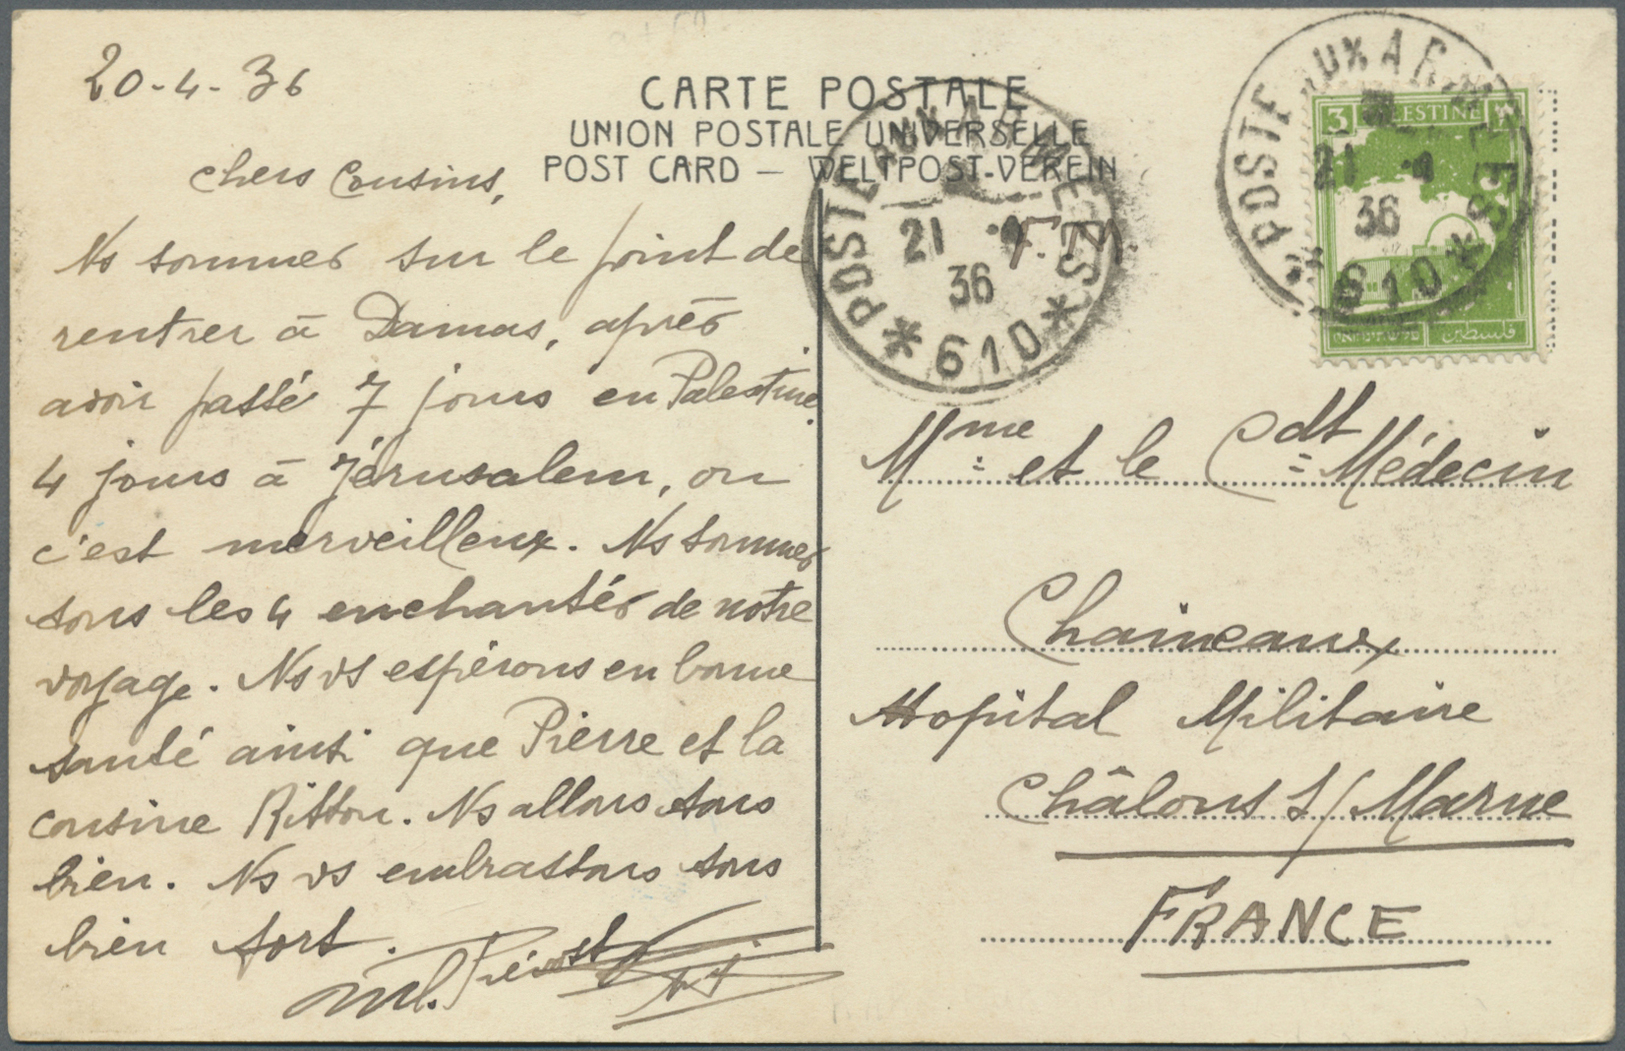 20-4-36
CARTE POSTALE
UNION POSTALE UNIVERSELLE
POST CARD — WELTPOST-VEREIN
chers Cousins,
Ns sommes sur le point de
rentrer à Damas, après
avoir passé 7 jours en Palestine.
4 jours à Jérusalem, ou
c'est merveilleux. Ns sommes
tous les 4 enchantés de notre
voyage. Ns vs espérons en bonne
santé ainsi que Pierre et la
cousine Ritton. Ns allons tous
bien. Ns vs embrassons tous
bien fort.
POSTE AUX ARMEES
21 -4
36
* 610 *
F.M.
POSTE AUX ARMEES
21 -4
36
* 610 *
3 PALESTINE ٣
فلسطين
Mme et le Cdt Médecin
Chaineaux
Hopital Militaire
Châlons s/Marne
FRANCE